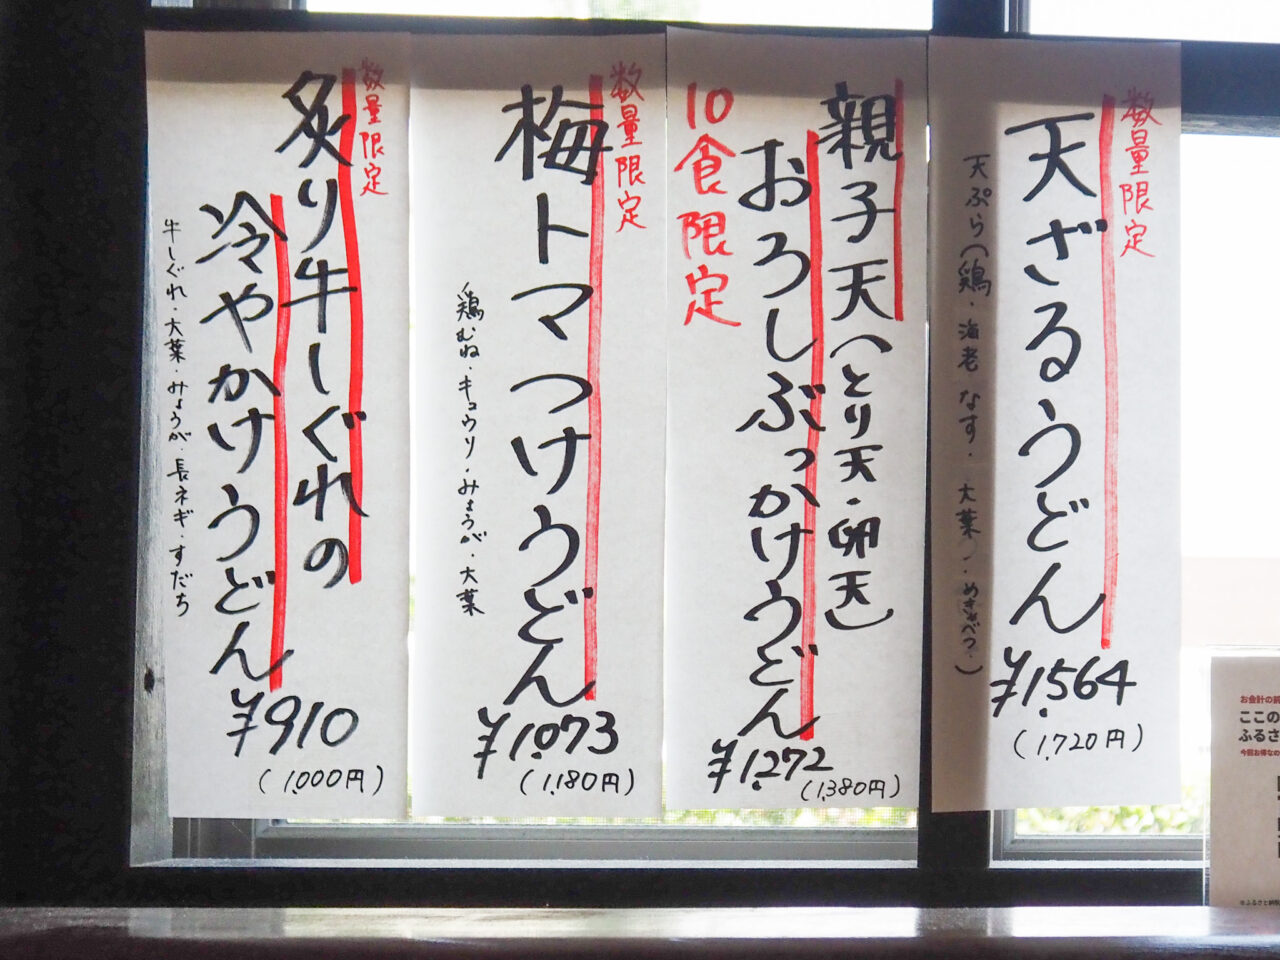 数量限定
天ざるうどん
天ぷら(鶏・海老・なす・大葉・
¥1,564
(1,720円)
親子天(とり天・卵天)
おろしぶっかけうどん
10食限定
¥1,272
(1,380円)
数量限定
梅トマつけうどん
鶏むね・キュウリ・みょうが・大葉
¥1,073
(1,180円)
数量限定
炙り牛しぐれの
冷やかけうどん
牛しぐれ・大葉・みょうが・長ネギ・すだち
¥910
(1,000円)
お会計の前
ここの
ふるさ